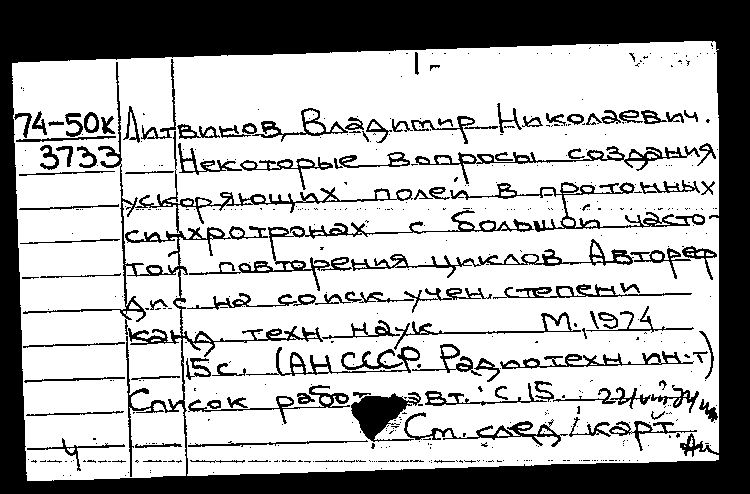 1-
74-50к Литвинов, Владимир Николаевич.
3733 Некоторые вопросы создания
ускоряющих полей в протонных
синхротронах с большой часто-
той повторения циклов. Автореф
дис. на соиск. учен. степени
канд. техн. наук. М., 1974.
15 с. (АН СССР. Радиотехн. ин-т)
Список работ авт.: с. 15.
См. след / карт.
Ч